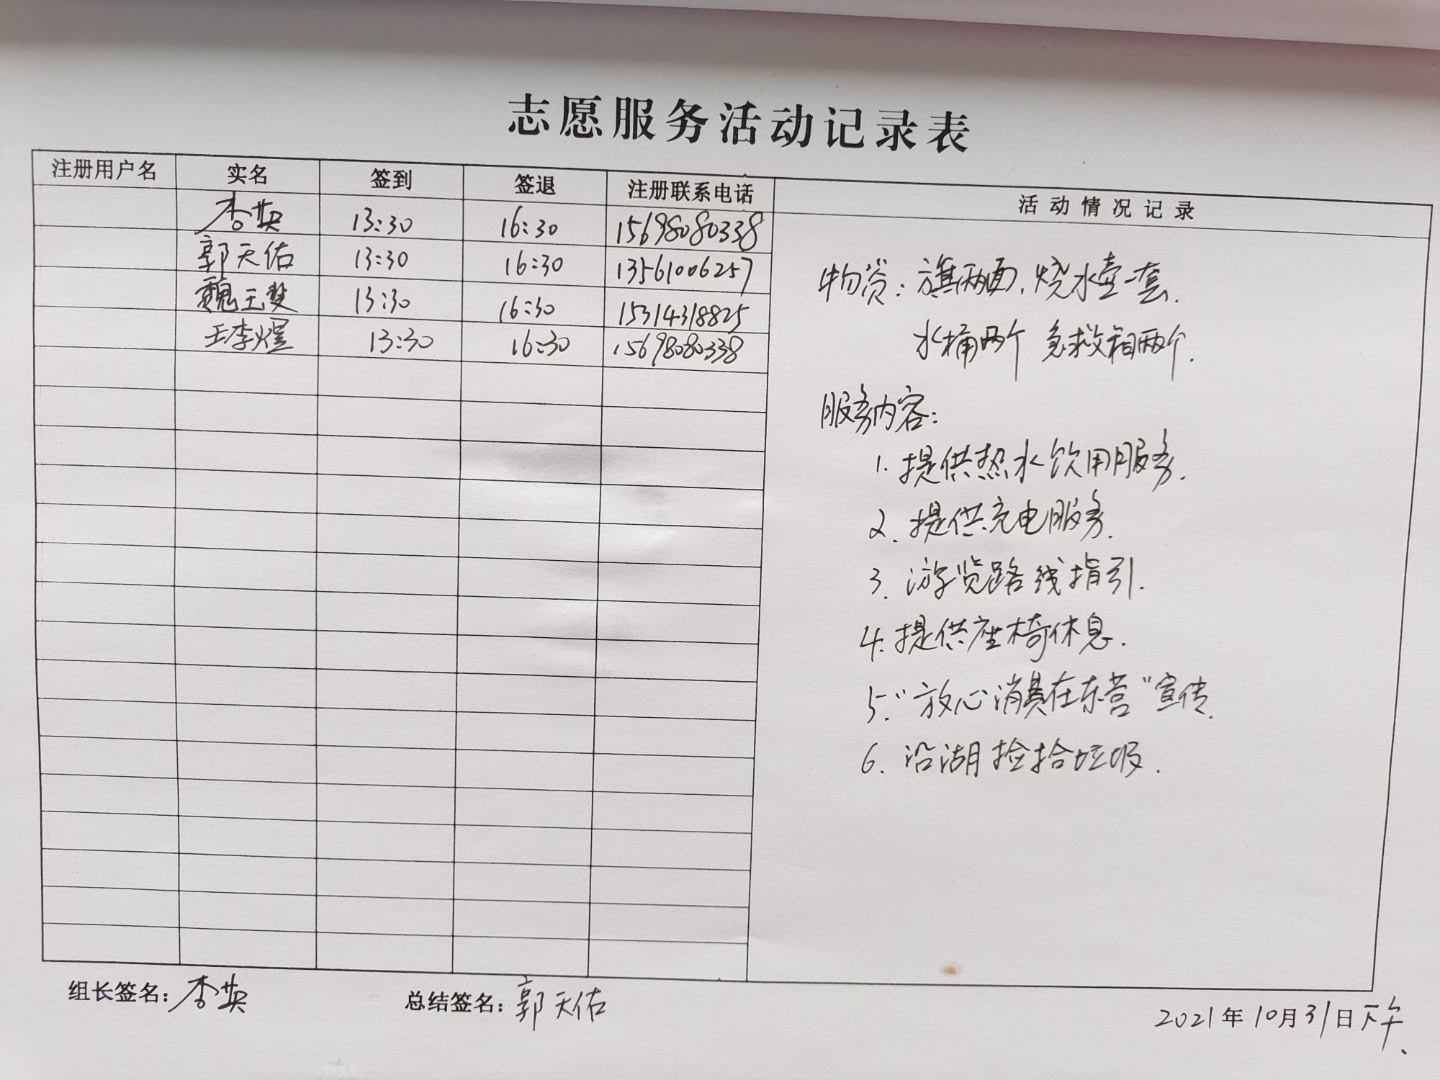 志愿服务活动记录表
注册用户名 实名 签到 签退 注册联系电话 活动情况记录
李英 13:30 16:30 15698080338
郭天佑 13:30 16:30 13561006257
魏玉英 13:30 16:30 15314318825
王李煜 13:30 16:30 15698080338
物资：旗两面，烧水壶一套，
水桶两个 急救箱两个.
服务内容：
1. 提供热水饮用服务.
2. 提供充电服务.
3. 游览路线指引.
4. 提供座椅休息.
5. “放心消费在东营”宣传.
6. 沿湖捡拾垃圾.
组长签名：李英 总结签名：郭天佑
2021年10月31日下午.